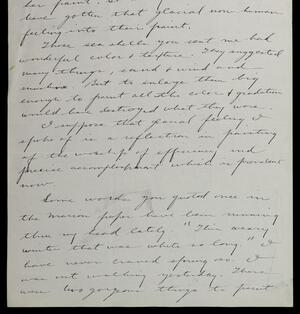 her paint. S
have gotten that glacial non-human
feeling into their paint.
Those sea shells you sent me had
wonderful color & texture. They suggested
many things, sand & wind and
sunshine. But to enlarge them big
enough to paint all the color & gradation
would have destroyed what they were.
I suppose that glacial feeling I
spoke of is a reflection in painting
of the worship of efficiency and
precise accomplishment which is prevalent
now.
Some words you quoted once in
the Marion paper have been running
thru my head lately. "This weary
winter that was white so long." I
have never craved spring so. I
was out walking yesterday. There
were two gorgeous things to paint